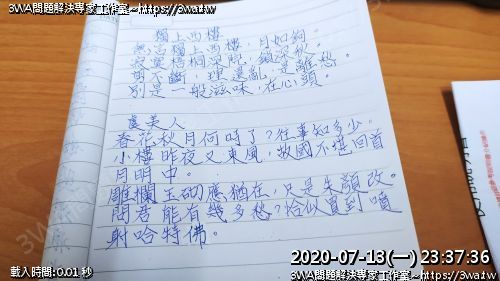 3WA問題解決專家工作室~https://3wa.tw
獨上西樓
無言獨上西樓，月如鉤。
寂寞梧桐深院，鎖深秋。
剪不斷，理還亂，是離愁。
別是一般滋味，在心頭。
虞美人
春花秋月何時了?往事知多少。
小樓昨夜又東風，故國不堪回首
月明中。
雕欄玉砌應猶在，只是朱顏改。
問君能有幾多愁?恰似到噴
射哈特佛。
2020-07-13(一) 23:37:36
載入時間: 0.01 秒
3WA問題解決專家工作室~https://3wa.tw